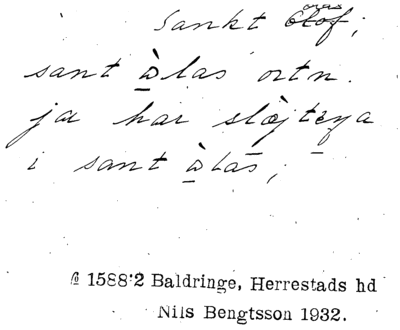 Sankt Olof;
sant ò̲las ortn.
ja har slòjtẹṉa
i sant ò̲las;
1588:2 Baldringe, Herrestads hd
Nils Bengtsson 1932.